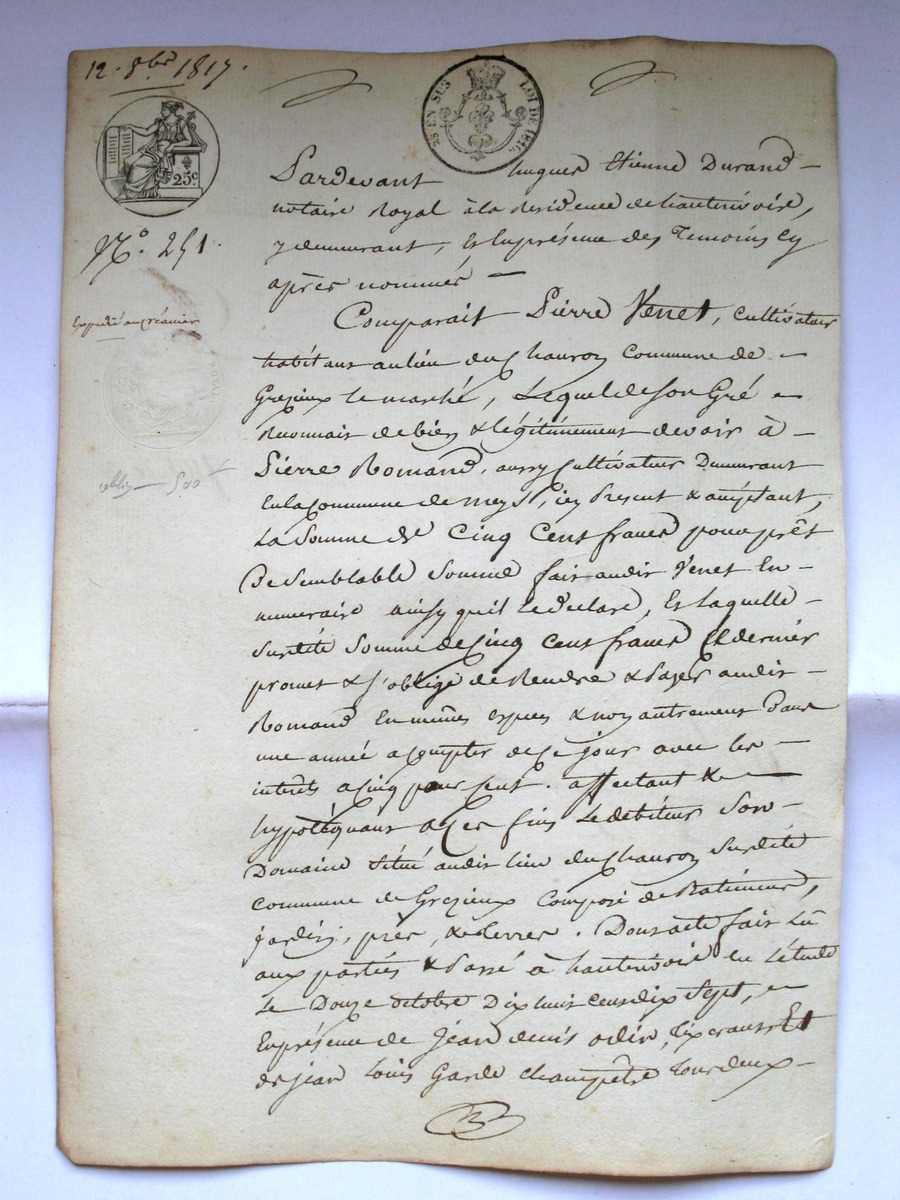 12. 8bre 1817.
25 EN SUS LOI DE 1816.
25c
N° 251.
Expédié au créancier
oblig. 500
Pardevant hugues Etienne Durand
notaire Royal à la Residence de hauterivoire,
y demeurant, Et En présence des Temoins Cy
après nommés —
Comparait Pierre Venet, Cultivateur
habitant au lieu du Chauvon Commune de
Grezieux le marché, Lequel de son Gré
Reconnait de bien & légitimement devoir à
Pierre Romand, aussy Cultivateur Demeurant
En la Commune de meys, icy Present & acceptant,
La Somme de Cinq Cent francs pour prêt
De Semblable Somme fait audit Venet En
numeraire ainsy qu'il Le declare, Et Laquelle
Susdite Somme de Cinq Cent francs Ce dernier
promet & s'oblige de Rendre & Payer audit
Romand En mêmes especes & non autrement Dans
une année a Compter de Ce jour avec les
interêts a Cinq pour Cent. affectant &
hypotéquant a Ces fins Le debiteur Son
Domaine Situé audit lieu du Chauvon Susdite
Commune de Grezieux Composé de Batiments,
jardin, près, & terres. Dont acte fait Lû
aux parties & Passé à hauterivoire en L'étude
Le Douze octobre Dix huit cent dix Sept,
En présence de Jean denis odin, Tixerant Et
de jean Louis Garde champêtre